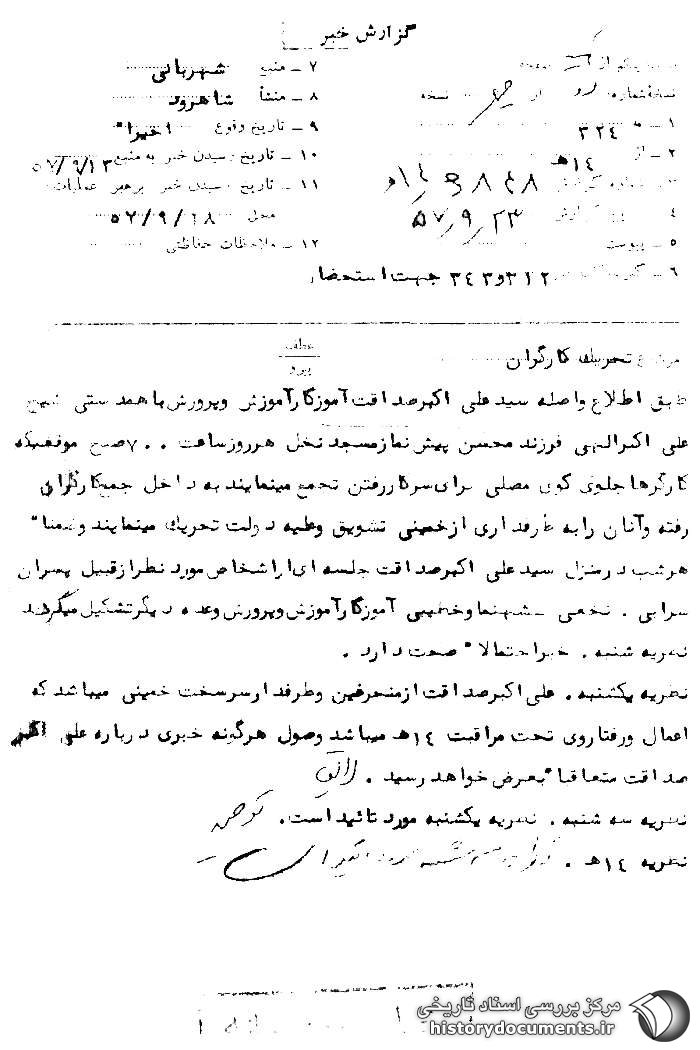 گزارش خبر
صفحه
نسخه شماره از نسخه
۱ ـ به ۳۲۴
۲ ـ از ۱۴ هـ
۴ گزارش ۵۷/۹/۲۳
۵ ـ پیوست
۶ ـ ۳۱۲ و ۳۴۳ جهت استحضار
۷ ـ منبع شهربانی
۸ ـ منشأ شاهرود
۹ ـ تاریخ وقوع اخیرا"
۱۰ ـ تاریخ رسیدن خبر به منبع ۵۷/۹/۱۳
۱۱ ـ تاریخ رسیدن خبر برهبر عملیات
محل ۵۷/۹/۱۸
۱۲ ـ ملاحظات حفاظتی
عطف
پیرو
موضوع تحریک کارگران
طبق اطلاع واصله سید علی اکبر صداقت آموزگار آموزش و پرورش با همدستی شیخ
علی اکبر الهی فرزند محسن پیش نماز مسجد نخل هر روز ساعت ۷۰۰ صبح موقعیکه
کارگرها جلوی کوی مصلی برای سرکار رفتن تجمع مینمایند به داخل جمع کارگران
رفته و آنان را به طرفداری از خمینی تشویق و علیه دولت تحریک مینمایند و ضمنا"
هر شب در منزل سید علی اکبر صداقت جلسه ای از اشخاص مورد نظر از قبیل پسران
سرابی . نخعی ـ شهنما و خطیبی آموزگار آموزش و پرورش و عده دیگر تشکیل میگردد
نظریه شنبه . خبر احتمالا" صحت دارد .
نظریه یکشنبه . علی اکبر صداقت از منحرفین و طرفدار سرسخت خمینی میباشد که
اعمال و رفتار وی تحت مراقبت ۱۴ هـ میباشد وصول هرگونه خبری درباره علی اکبر
صداقت متعاقبا" بعرض خواهد رسید .
نظریه سه شنبه . نظریه یکشنبه مورد تائید است.
نظریه ۱۴ هـ .
مرکز بررسی اسناد تاریخی
historydocuments.ir